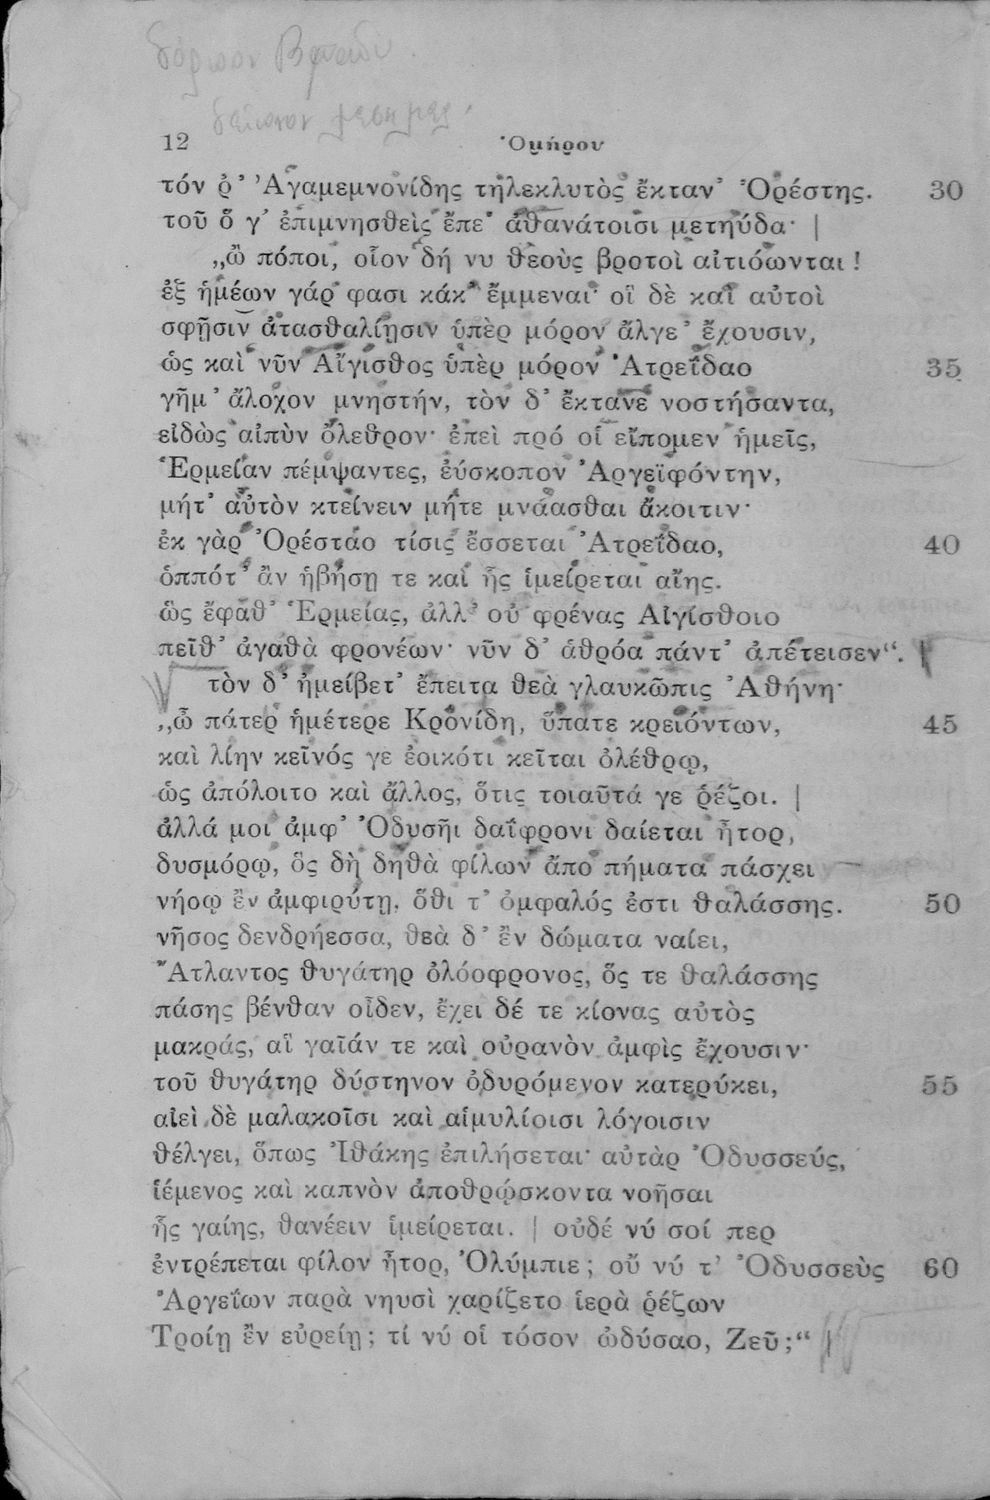 12
Ὁμήρου
τόν ῥ’ Ἀγαμεμνονίδης τηλεκλυτὸς ἔκταν’ Ὀρέστης. 30
τοῦ ὅ γ’ ἐπιμνησθεὶς ἔπε’ ἀθανάτοισι μετηύδα· |
„ὢ πόποι, οἷον δή νυ θεοὺς βροτοὶ αἰτιόωνται!
ἐξ ἡμέων γάρ φασι κάκ’ ἔμμεναι· οἳ δὲ καὶ αὐτοὶ
σφῇσιν ἀτασθαλίῃσιν ὑπὲρ μόρον ἄλγε’ ἔχουσιν,
ὡς καὶ νῦν Αἴγισθος ὑπὲρ μόρον Ἀτρεΐδαο 35
γῆμ’ ἄλοχον μνηστήν, τὸν δ’ ἔκτανε νοστήσαντα,
εἰδὼς αἰπὺν ὄλεθρον· ἐπεὶ πρό οἱ εἴπομεν ἡμεῖς,
Ἑρμείαν πέμψαντες, ἐύσκοπον Ἀργεϊφόντην,
μήτ’ αὐτὸν κτείνειν μήτε μνάασθαι ἄκοιτιν·
ἐκ γὰρ Ὀρέσταο τίσις ἔσσεται Ἀτρεΐδαο, 40
ὁππότ’ ἂν ἡβήσῃ τε καὶ ἧς ἱμείρεται αἴης.
ὣς ἔφαθ’ Ἑρμείας, ἀλλ’ οὐ φρένας Αἰγίσθοιο
πεῖθ’ ἀγαθὰ φρονέων· νῦν δ’ ἁθρόα πάντ’ ἀπέτεισεν“.
τὸν δ’ ἠμείβετ’ ἔπειτα θεὰ γλαυκῶπις Ἀθήνη·
„ὦ πάτερ ἡμέτερε Κρονίδη, ὕπατε κρειόντων, 45
καὶ λίην κεῖνός γε ἐοικότι κεῖται ὀλέθρῳ,
ὡς ἀπόλοιτο καὶ ἄλλος, ὅτις τοιαῦτά γε ῥέζοι. |
ἀλλά μοι ἀμφ’ Ὀδυσῆι δαΐφρονι δαίεται ἦτορ,
δυσμόρῳ, ὃς δὴ δηθὰ φίλων ἄπο πήματα πάσχει
νήσῳ ἒν ἀμφιρύτῃ, ὅθι τ’ ὀμφαλός ἐστι θαλάσσης. 50
νῆσος δενδρήεσσα, θεὰ δ’ ἒν δώματα ναίει,
Ἄτλαντος θυγάτηρ ὀλόοφρονος, ὅς τε θαλάσσης
πάσης βένθαν οἶδεν, ἔχει δέ τε κίονας αὐτὸς
μακράς, αἳ γαῖάν τε καὶ οὐρανὸν ἀμφὶς ἔχουσιν·
τοῦ θυγάτηρ δύστηνον ὀδυρόμενον κατερύκει, 55
αἰεὶ δὲ μαλακοῖσι καὶ αἱμυλίοισι λόγοισιν
θέλγει, ὅπως Ἰθάκης ἐπιλήσεται· αὐτὰρ Ὀδυσσεύς,
ἱέμενος καὶ καπνὸν ἀποθρῴσκοντα νοῆσαι
ἧς γαίης, θανέειν ἱμείρεται. | οὐδέ νύ σοί περ
ἐντρέπεται φίλον ἦτορ, Ὀλύμπιε; οὔ νύ τ’ Ὀδυσσεὺς 60
Ἀργεΐων παρὰ νηυσὶ χαρίζετο ἱερὰ ῥέζων
Τροίῃ ἒν εὐρείῃ; τί νύ οἱ τόσον ὠδύσαο, Ζεῦ;“